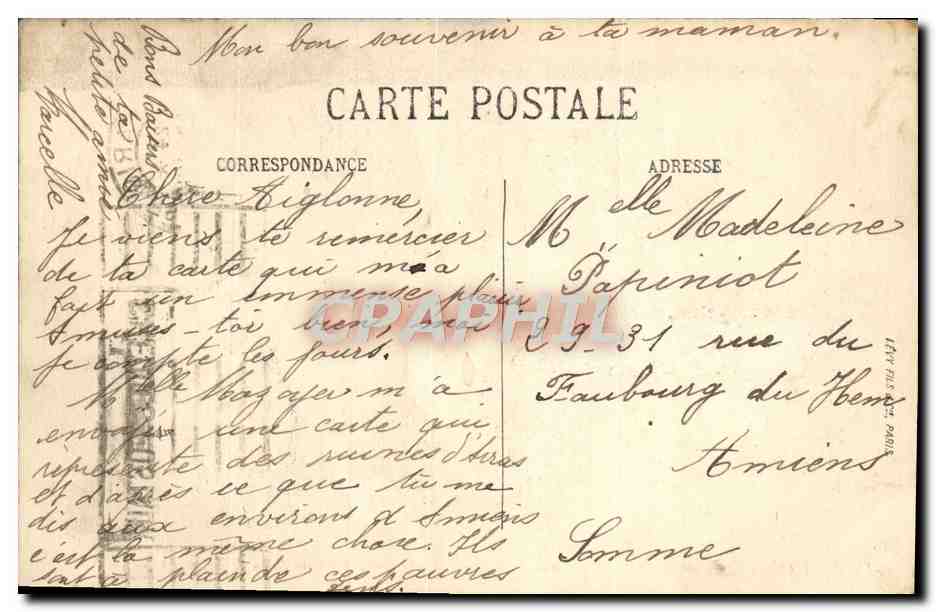 Mon bon souvenir à ta maman.
CARTE POSTALE
CORRESPONDANCE
ADRESSE
Chère Aiglonne,
Je viens te remercier
de ta carte qui m'a
fait un immense plaisir
Amuses-toi bien, moi
je compte les jours.
Melle Mazayer m'a
envoyé une carte qui
représente des ruines d'Arras
et d'après ce que tu me
dis aux environs d'Amiens
c'est la même chose. Ils
sont à plaindre ces pauvres
gens.
Bons Baisers
de ta
petite amie
Marcelle
Melle Madeleine
Papiniot
29-31 rue du
Faubourg du Hem
Amiens
Somme
LÉVY FILS & Cie, PARIS
CPAPHIL